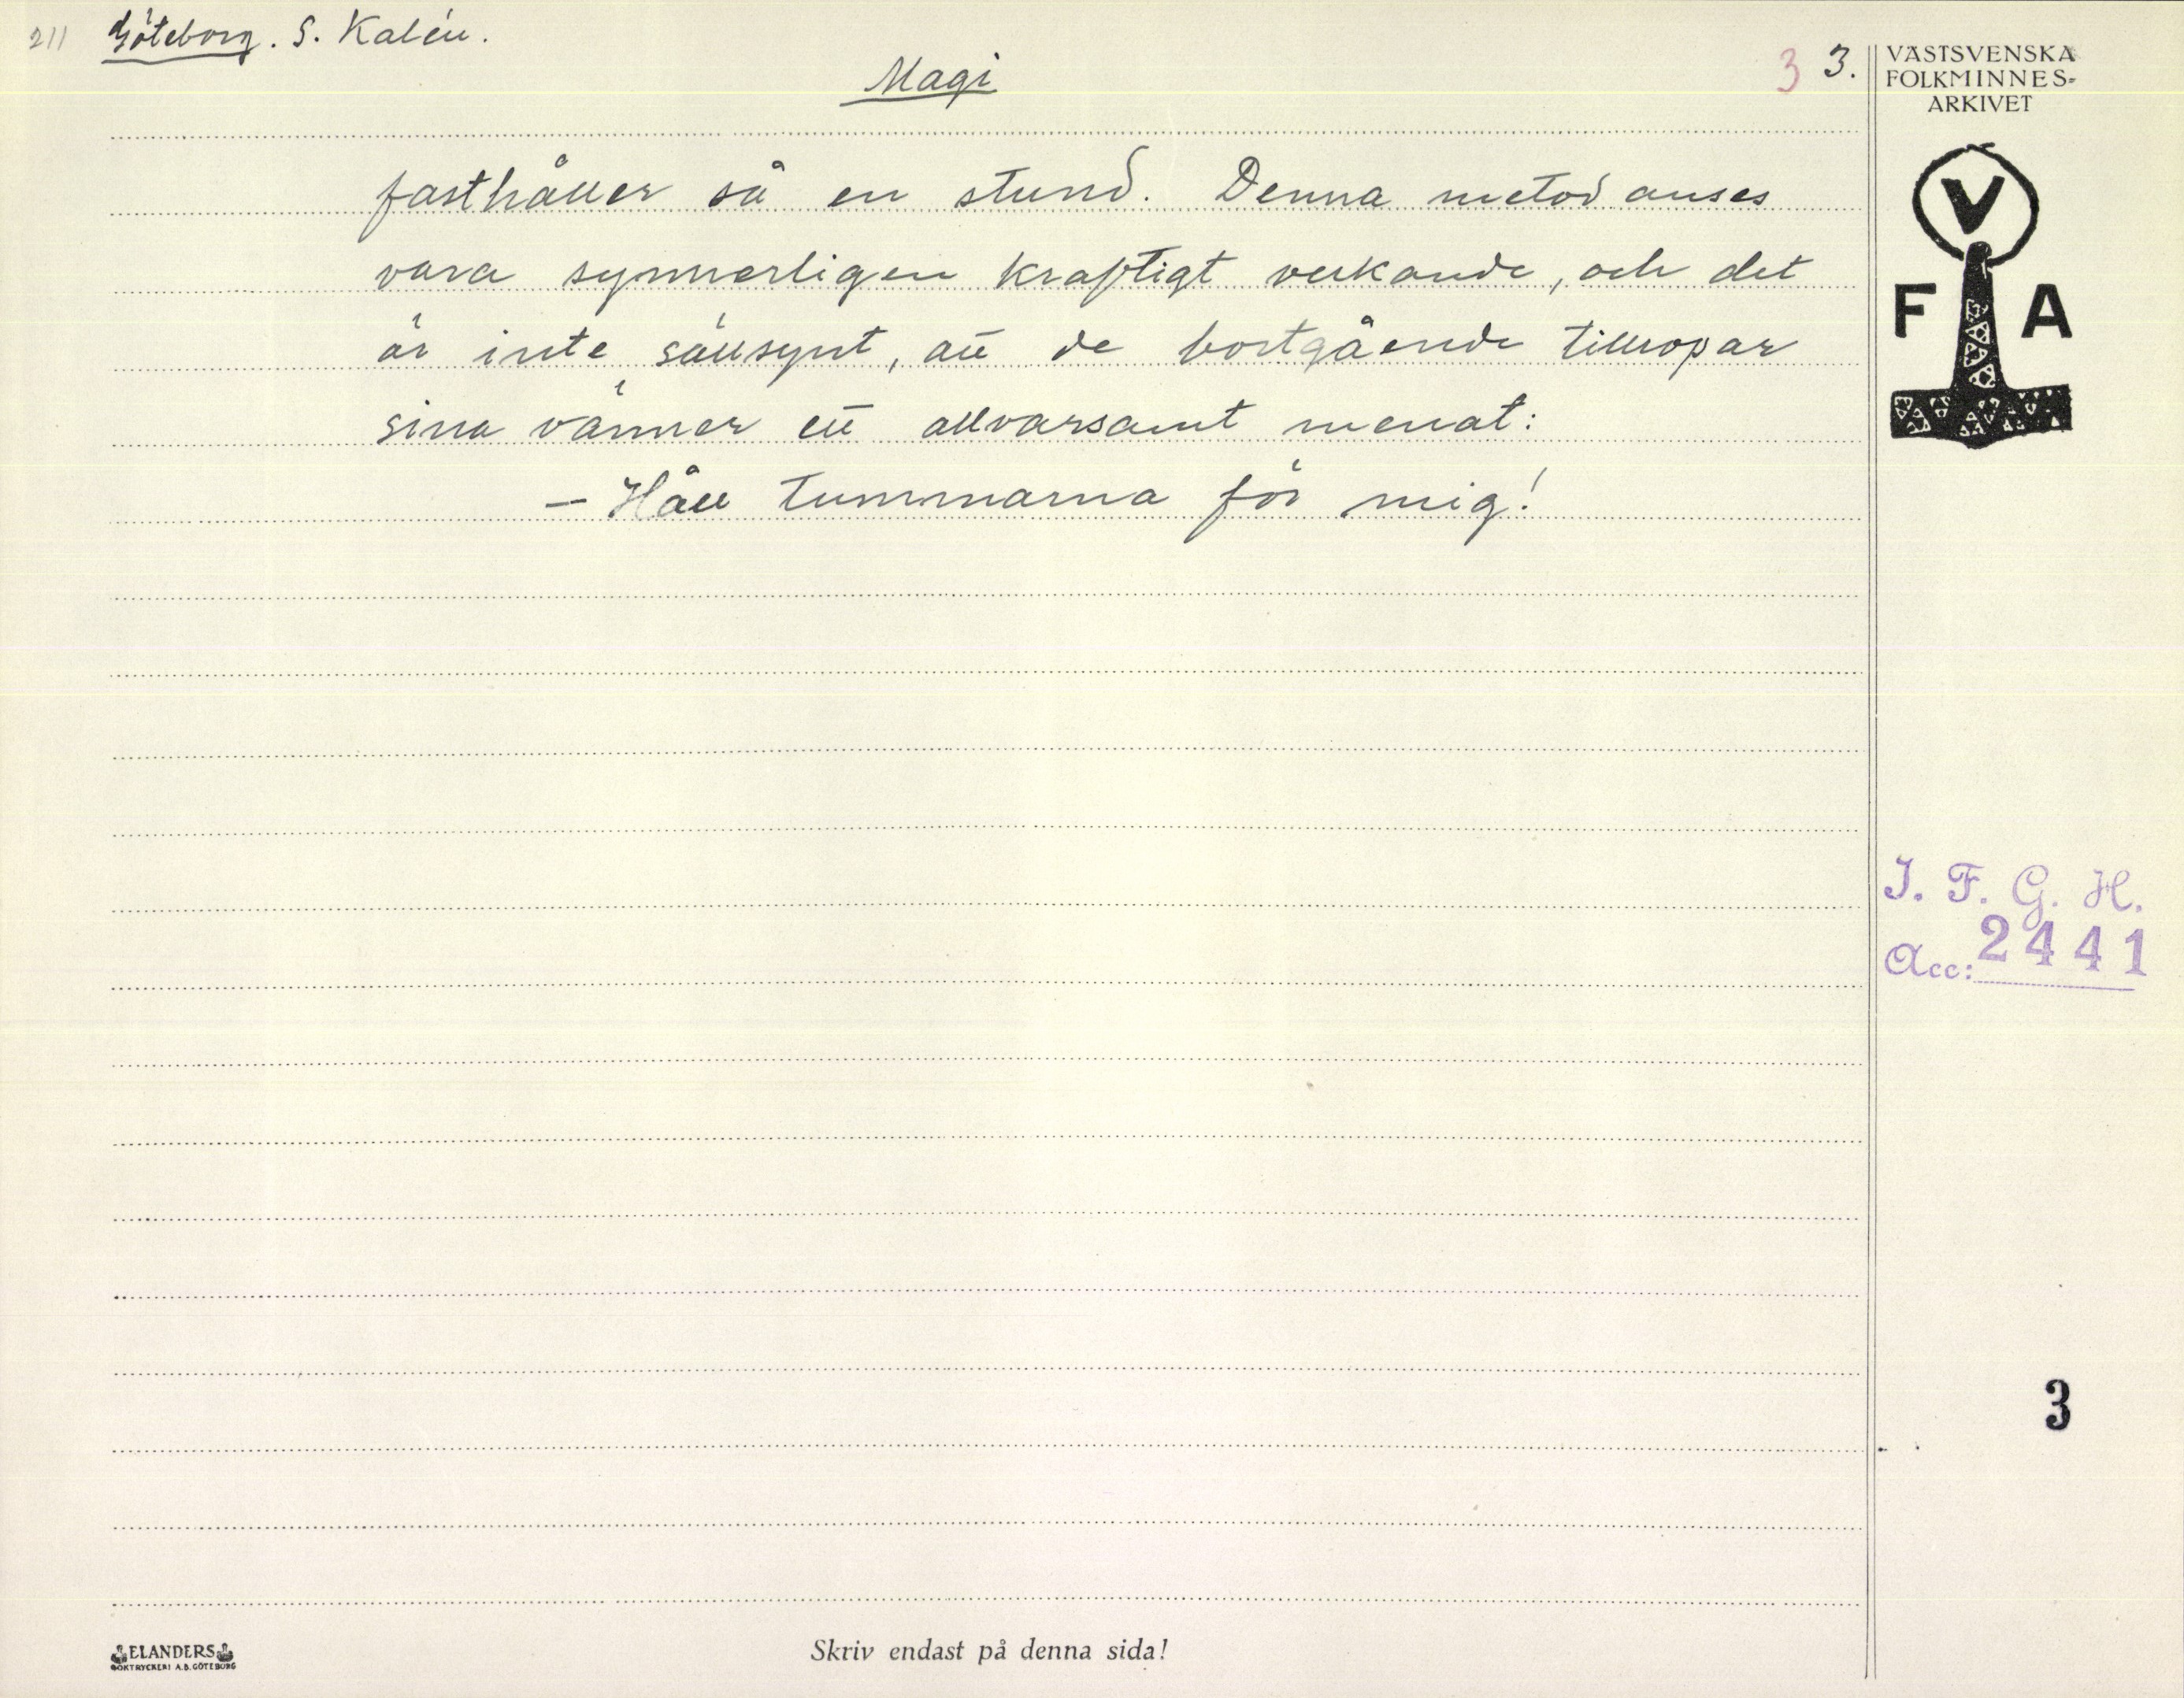 211 Göteborg. S. Kalén.
Magi
3 3.
VÄSTSVENSKA
FOLKMINNES-
ARKIVET
fasthåller så en stund. Denna metod anses
vara synnerligen kraftigt verkande, och det
är inte sällsynt, att de bortgående tillropar
sina vänner ett allvarsamt menat:
— Håll tummarna för mig!
V
F A
I. F. G. H.
Acc: 2441
3
ELANDERS
BOKTRYCKERI A.B. GÖTEBORG
Skriv endast på denna sida!